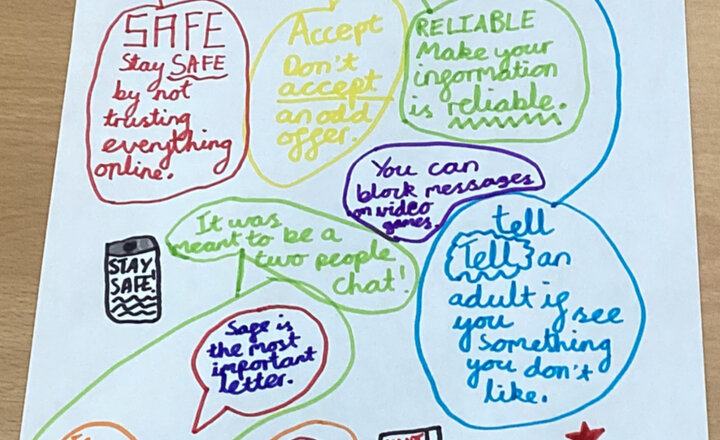 SAFE
Stay SAFE
by not
trusting
everything
online.
Accept
Don't
accept
an odd
offer.
RELIABLE
Make your
information
is reliable.
You can
block messages
on video
games.
It was
meant to be a
two people
chat!
STAY
SAFE!
tell
Tell an
adult if
you see
something
you don't
like.
Safe is
the most
important
letter.